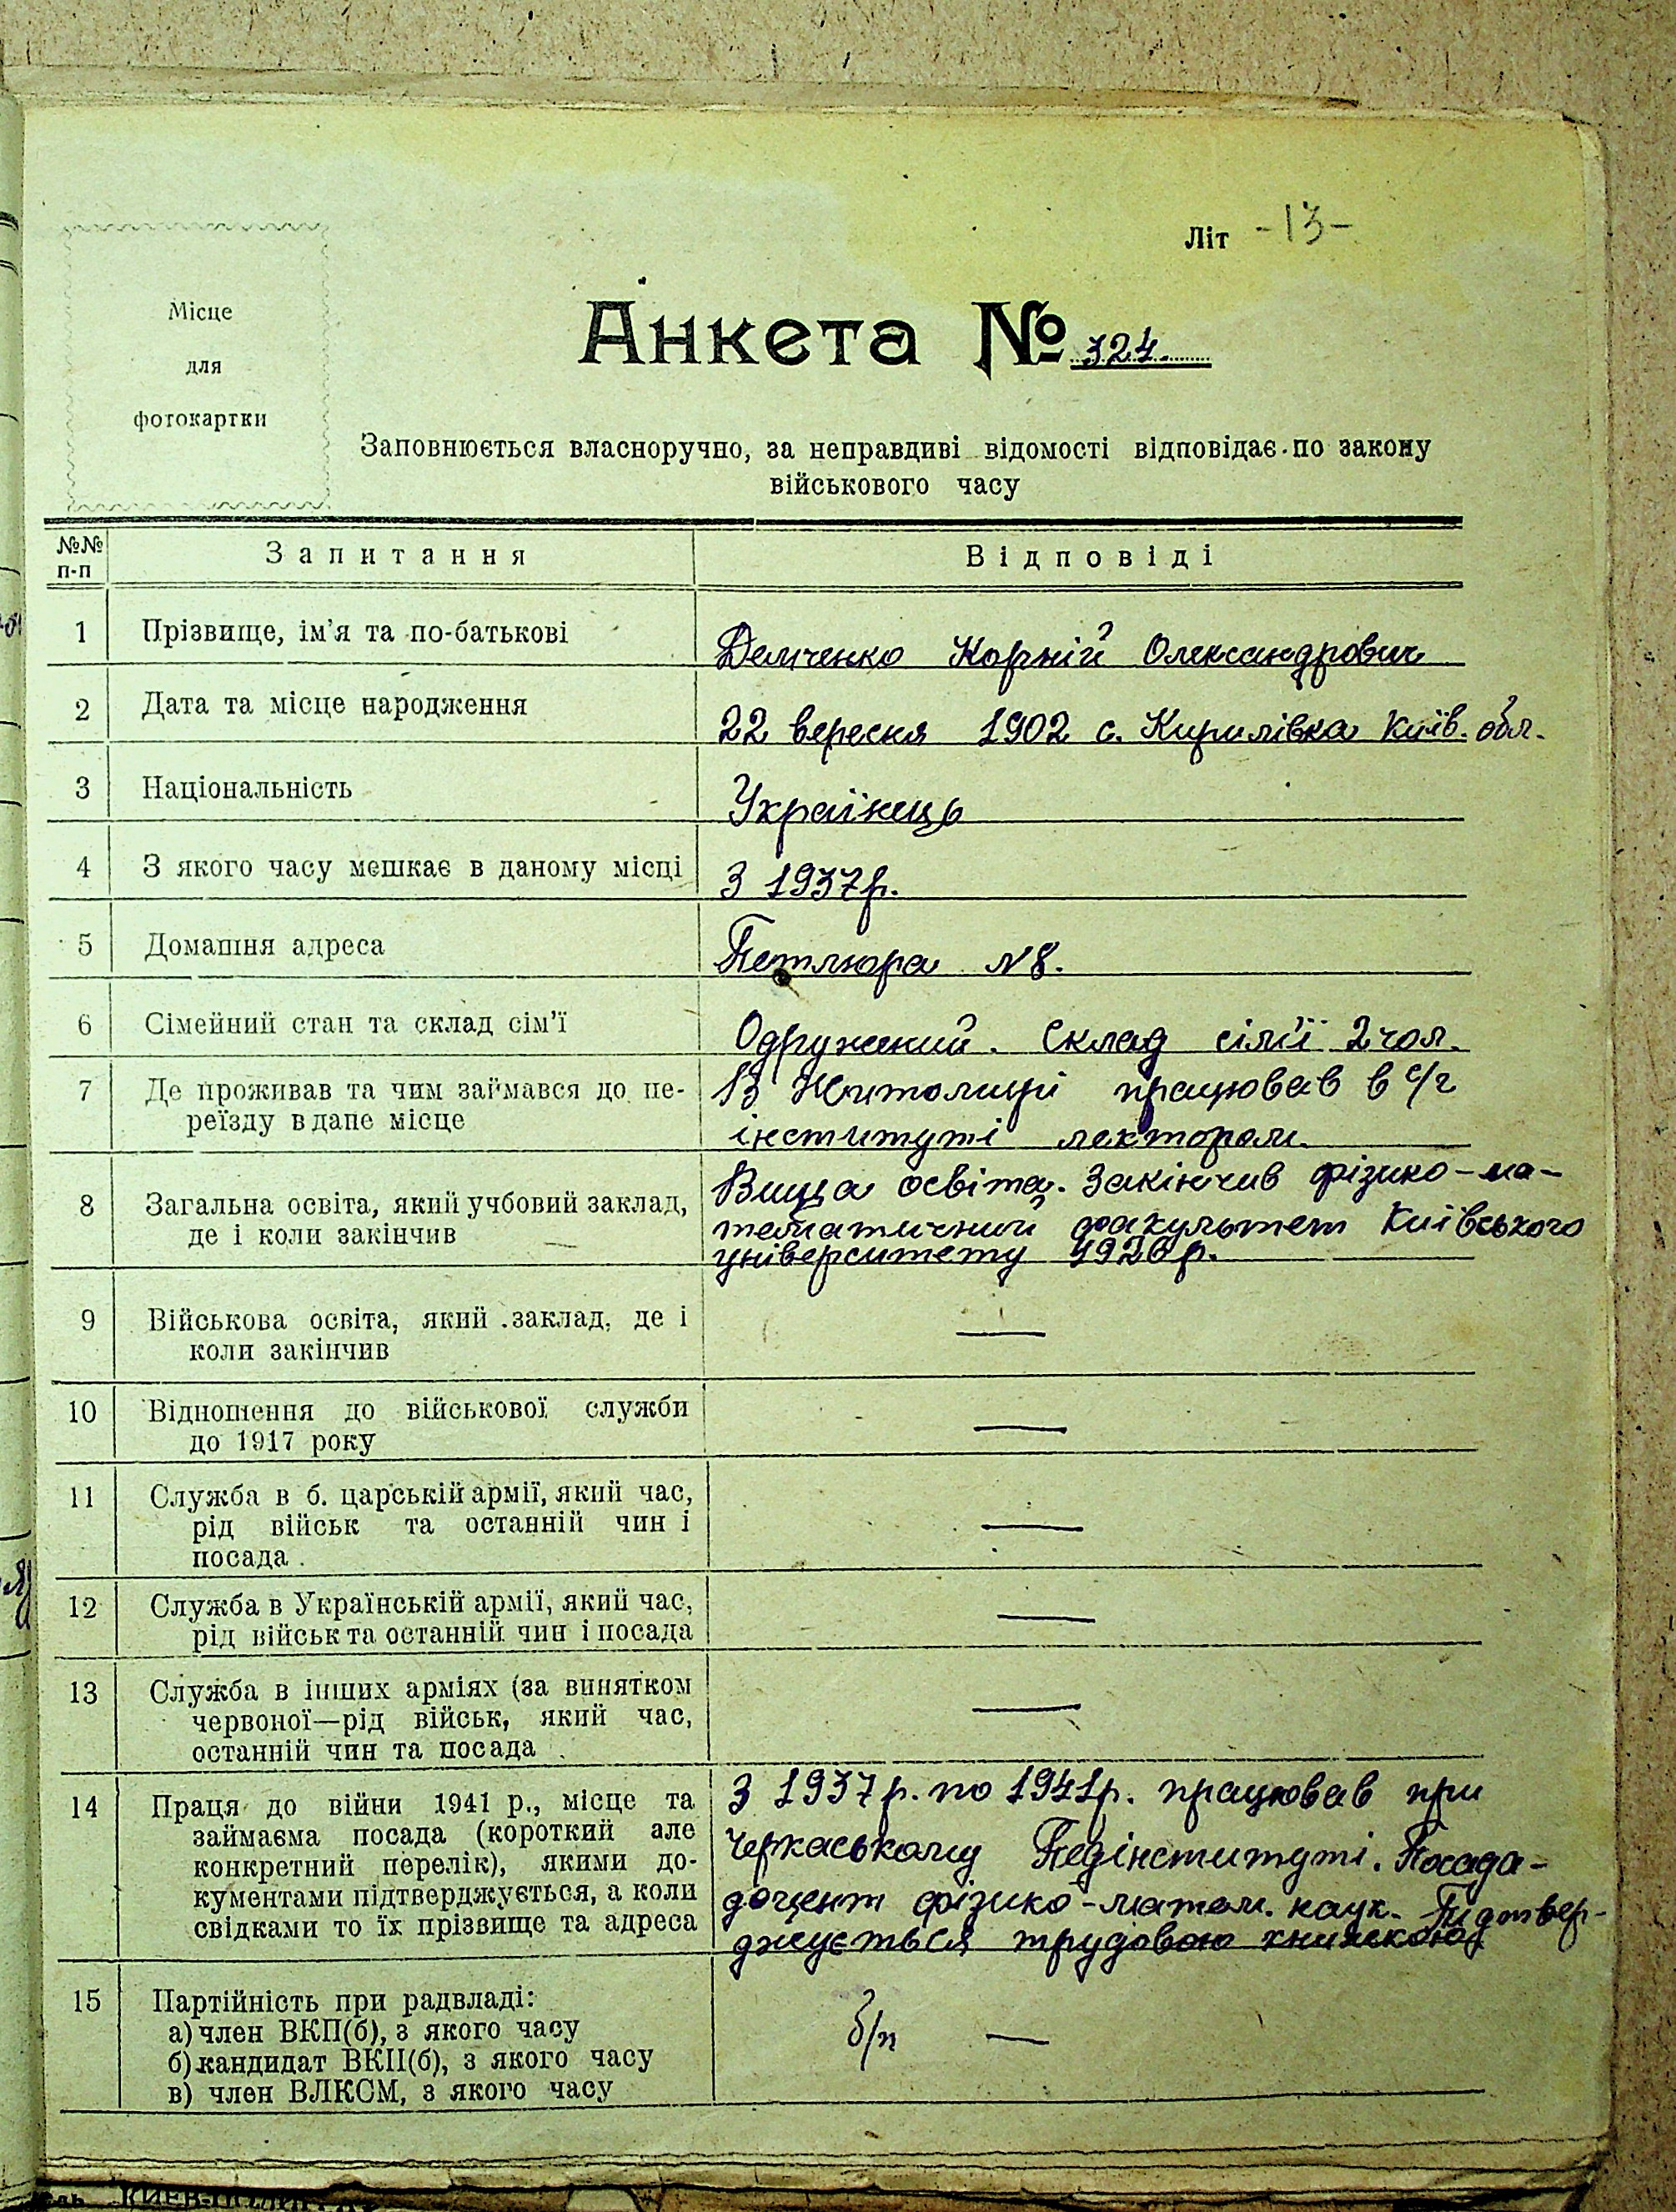 Літ -13-
Місце
для
фотокартки
Анкета № 324.
Заповнюється власноручно, за неправдиві відомості відповідає по закону
військового часу
№№ п-п Запитання Відповіді
1 Прізвище, ім'я та по-батькові Демченко Корній Олександрович
2 Дата та місце народження 22 вересня 1902 с. Кирилівка Київ. обл.
3 Національність Українець
4 З якого часу мешкає в даному місці З 1937р.
5 Домашня адреса Петлюра №8.
6 Сімейний стан та склад сім'ї Одружений. Склад сім'ї 2 чол.
7 Де проживав та чим займався до пе- В Житомирі працював в с/г
реїзду в дане місце інституті лектором.
8 Загальна освіта, який учбовий заклад, Вища освіта. Закінчив фізико-ма-
де і коли закінчив тематичний факультет Київського
університету 1926р.
9 Військова освіта, який заклад, де і —
коли закінчив
10 Відношення до військової служби —
до 1917 року
11 Служба в б. царській армії, який час, —
рід військ та останній чин і
посада
12 Служба в Українській армії, який час, —
рід військ та останній чин і посада
13 Служба в інших арміях (за винятком —
червоної—рід військ, який час,
останній чин та посада
14 Праця до війни 1941 р., місце та З 1937р. по 1941р. працював при
займаєма посада (короткий але Черкаському Педінституті. Посада-
конкретний перелік), якими до- доцент фізико-матем. наук. Підтвер-
кументами підтверджується, а коли джується трудовою книжкою
свідками то їх прізвище та адреса
15 Партійність при радвладі: б/п —
а) член ВКП(б), з якого часу
б) кандидат ВКП(б), з якого часу
в) член ВЛКСМ, з якого часу